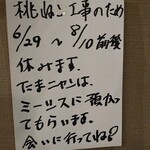 桃ねこ工事のため
6/29〜8/10前後
休みます。
たまニャンは、
ミーツスに預か
てもらいます。
会いに行ってね!